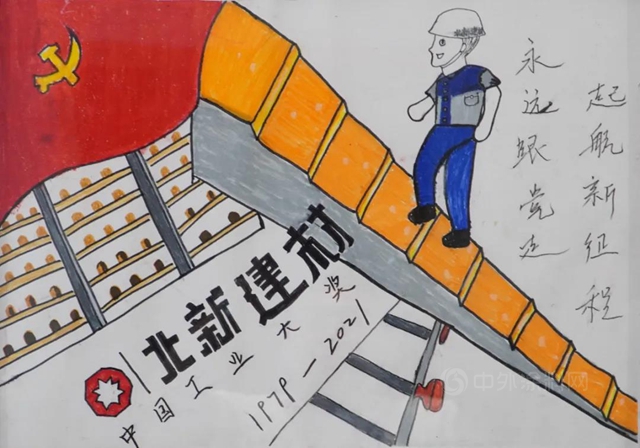 永远跟党走
起航新征程
北新建材
中国工业大奖
1979-2021